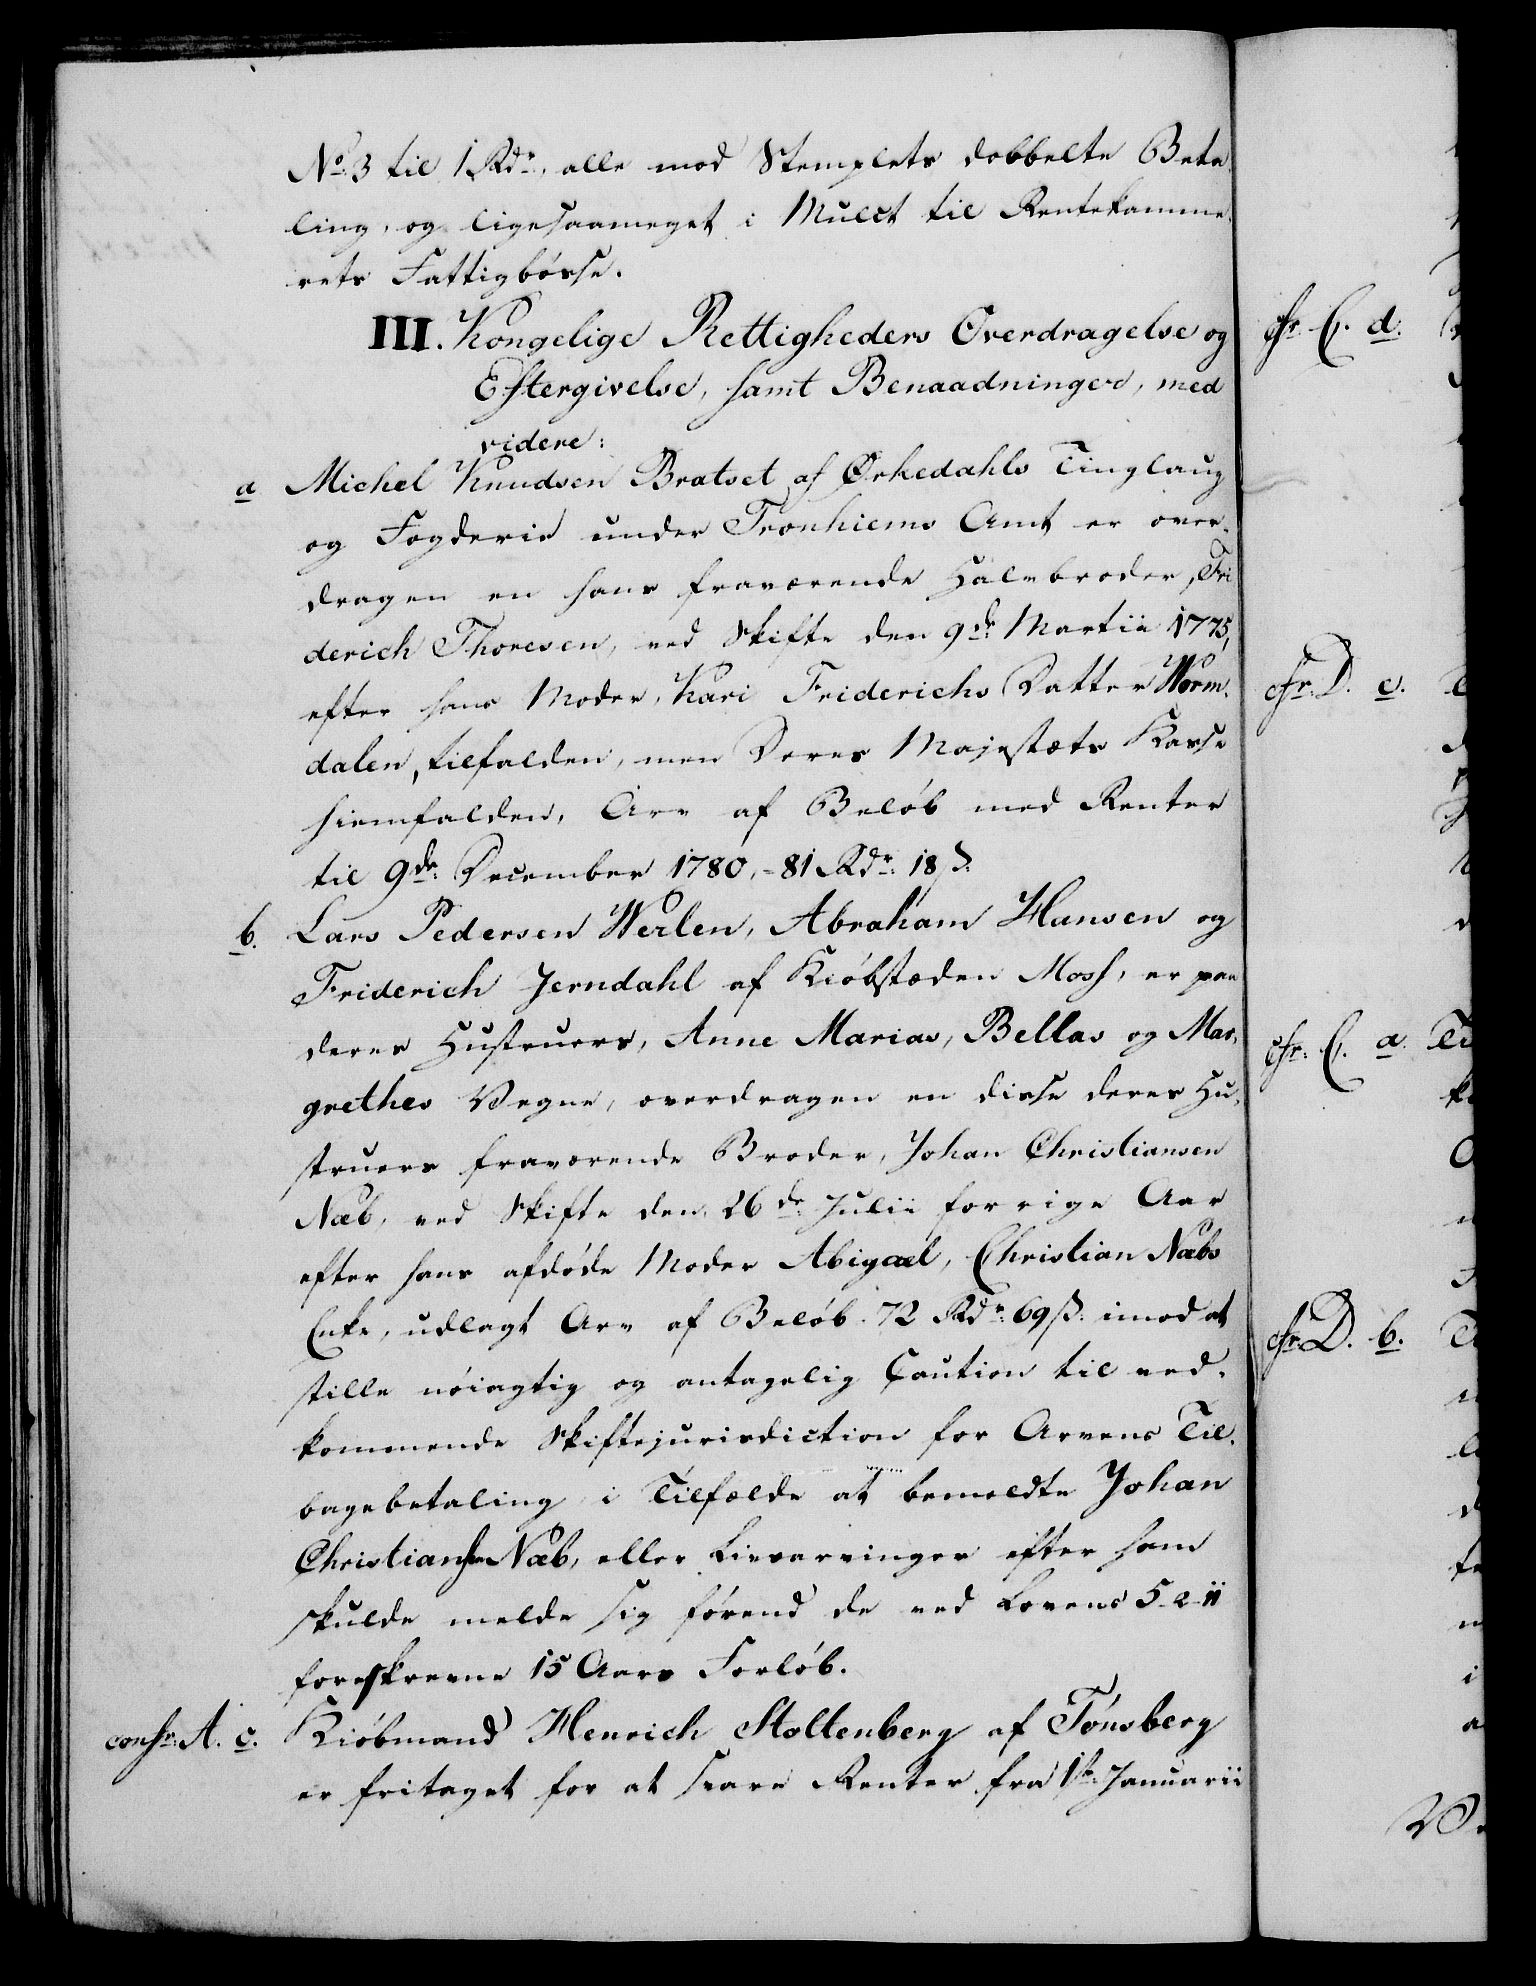 No. 3 til 1 Rdr. alle mod Stemplets dobbelte Beta-
ling, og ligesaameget i Mulct til Rentekamme-
rets Fattigbósse.
III. Kongelige Rettigheders Overdragelse og
Eftergivelse, samt Benaadninger, med
videre:
a Michel Knudsen Bratset af Ørkedahls Tinglaug
og Fogderie under Tronhiems Amt er over-
dragen en hans fraværende Halvbroder, Fri
derich Thoresen, ved Skifte den 9de Martii 1775,
efter hans Moder, Kari Friderichs Datter Worm-
dalen, tilfalden, men Deres Majestæts Kasse
hiemfalden, Arv af Belób med Renter
til 9de December 1780, - 81 Rdr. 18 ß.
b. Lars Pedersen Werlen, Abraham Hansen og
Friderich Jerndahl af Kióbstæden Moss, er paa
deres Hustruers, Anne Marias, Bellas og Mar-
grethes Vegne, overdragen en disse deres Hu-
struers fraværende Broder, Johan Christiansen
Næb, ved Skifte den 26de Julii forrige Aar
efter hans afdóde Moder Abigael, Christian Næbs
Enke, udlagt Arv af Belób 72 Rdr. 69 ß. imod at
stille nóiagtig og antagelig Caution til ved-
kommende Skiftejurisdiction for Arvens Til-
bagebetaling i Tilfælde at bemeldte Johan
Christiansen Næb, eller Livsarvinger efter ham
skulde melde sig fórend de ved Lovens 5-2-11
foreskrevne 15 Aars Forlób.
confr. A. c. Kióbmand Henrich Stoltenberg af Tónsberg
er fritaget for at svare Renter fra 1ste Januarii
cfr. C. d.
cfr. D. c.
cfr. C. a.
cfr. D. b.